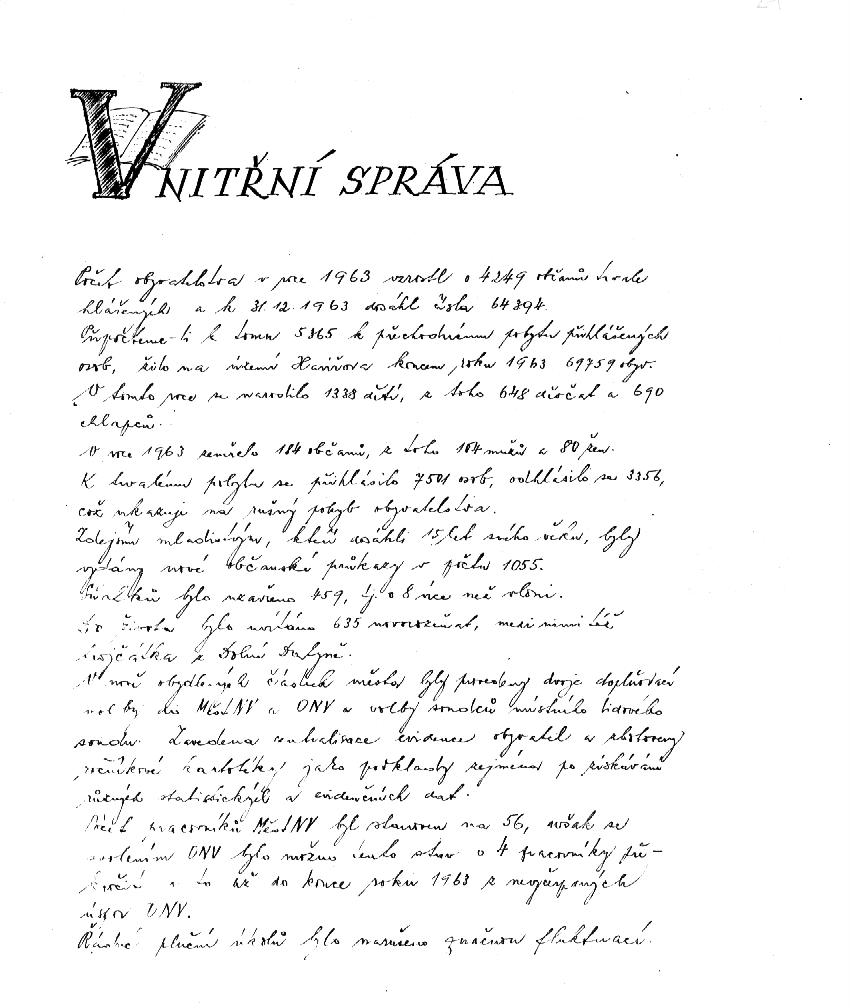 VNITŘNÍ SPRÁVA
Počet obyvatelstva v roce 1963 vzrostl o 4249 občanů trvale
hlášených a k 31.12.1963 dosáhl čísla 64394.
Připočteme-li k tomu 5365 k přechodnému pobytu přihlášených
osob, žilo na území Havířova koncem roku 1963 69759 obyv.
V tomto roce se narodilo 1338 dětí, z toho 648 děvčat a 690
chlapců.
V roce 1963 zemřelo 184 občanů, z toho 104 mužů a 80 žen.
K trvalému pobytu se přihlásilo 7501 osob, odhlásilo se 3356,
což ukazuje na rušný pohyb obyvatelstva.
Zdejším mladistvým, kteří dosáhli 15 let svého věku, byly
vydány nové občanské průkazy v počtu 1055.
Sňatků bylo uzavřeno 459, tj. o 8 více než vloni.
Do života bylo uvítáno 635 novorozeňat, mezi nimi též
trojčátka z Dolní Datyně.
V nově obydlených částech města byly provedeny dvoje doplňovací
volby do MěstNV a ONV a volby soudců místního lidového
soudu. Zavedena centralisace evidence obyvatel a zhotoveny
ročníkové kartotéky jako podklady zejména po získávání
různých statistických a evidenčních dat.
Počet pracovníků MěstNV byl stanoven na 56, avšak se
svolením ONV bylo možno tento stav o 4 pracovníky pře-
kročit a to až do konce roku 1963 z nevyčerpaných
úspor ONV.
Řádné plnění úkolů bylo narušeno značnou fluktuací.